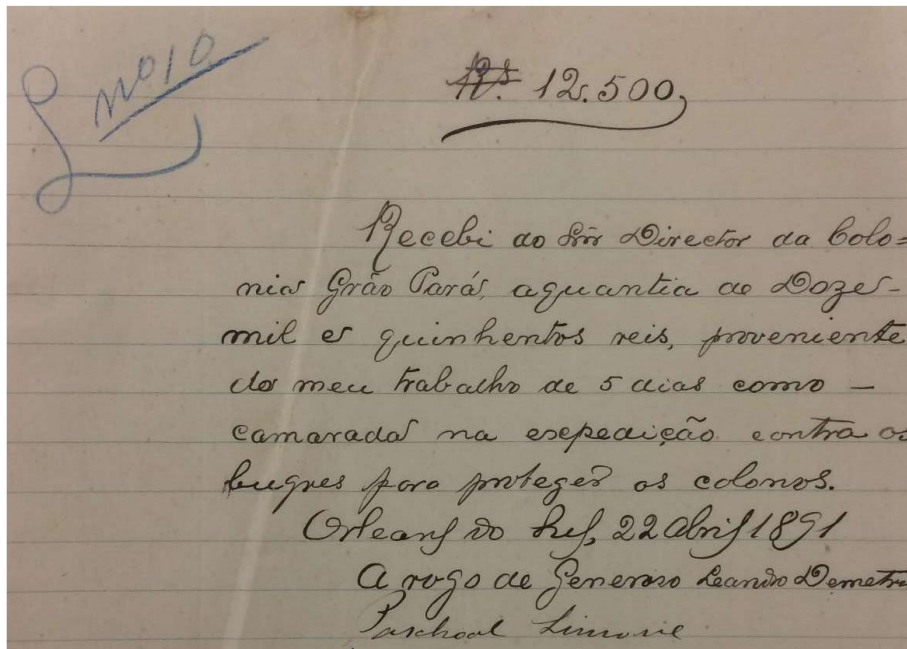 nº 10
Rs. 12.500,
Recebi do Snr Director da Colo=
nia Grão Pará, aquantia de Doze-
mil e quinhentos reis, proveniente
do meu trabalho de 5 dias como -
camarada na expedição contra os
bugres para proteger os colonos.
Orleans do Sul, 22 Abril 1891
A rogo de Generoso Leandro Demetri
Paschoal Simone